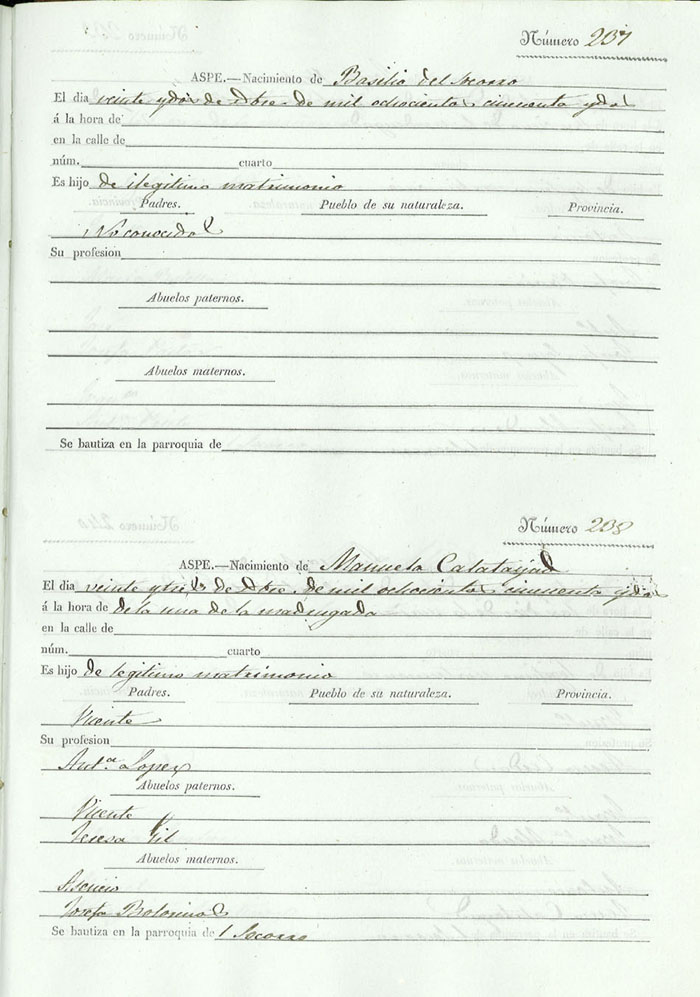 Número 237
ASPE.—Nacimiento de Basilio del Socorro
El dia veinte y dos de Dbre. de mil ochocientos cincuenta y dos
á la hora de
en la calle de
núm. cuarto
Es hijo de ilegitimo matrimonio
Padres. Pueblo de su naturaleza. Provincia.
No conocidos
Su profesion
Abuelos paternos.
Abuelos maternos.
Se bautiza en la parroquia de
Número 238
ASPE.—Nacimiento de Manuela Calatayud
El dia veinte y tres de Dbre. de mil ochocientos cincuenta y dos
á la hora de de la una de la madrugada
en la calle de
núm. cuarto
Es hijo de legitimo matrimonio
Padres. Pueblo de su naturaleza. Provincia.
Vicente
Su profesion
Antª Lopez
Abuelos paternos.
Vicente
Teresa Gil
Abuelos maternos.
Asencio
Josefa
Se bautiza en la parroquia de l Socorro